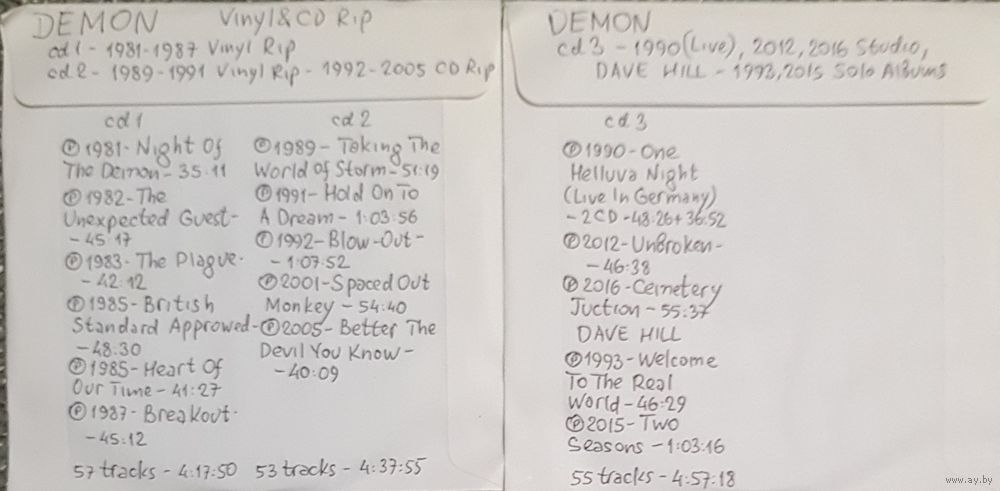 DEMON Vinyl&CD Rip
cd1 - 1981-1987 Vinyl Rip
cd2 - 1989-1991 Vinyl Rip - 1992-2005 CD Rip
cd1
℗1981-Night Of
The Demon-35:11
℗1982-The
Unexpected Guest-
-45:17
℗1983-The Plague-
-42:12
℗1985-British
Standard Approwed-
-48:30
℗1985-Heart Of
Our Time-41:27
℗1987-Breakout-
-45:12
57 tracks - 4:17:50
cd2
℗1989-Taking The
World Of Storm-51:19
℗1991-Hold On To
A Dream-1:03:56
℗1992-Blow-Out-
-1:07:52
℗2001-Spaced Out
Monkey-54:40
℗2005-Better The
Devil You Know-
-40:09
53 tracks - 4:37:55
DEMON
cd3 - 1990(Live), 2012, 2016 Studio,
DAVE HILL - 1993,2015 Solo Albums
cd3
℗1990-One
Helluva Night
(Live In Germany)
-2CD-48:26+36:52
℗2012-UnBroken-
-46:38
℗2016-Cemetery
Juction-55:37
DAVE HILL
℗1993-Welcome
To The Real
World-46:29
℗2015-Two
Seasons-1:03:16
55 tracks - 4:57:18
www.ay.by